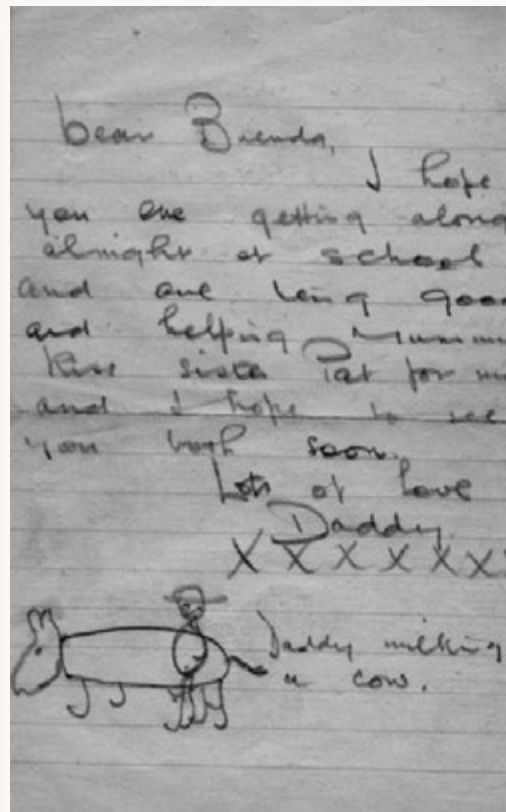 Dear Brenda,
I hope
you are getting along
alright at school
and are being good
and helping Mumm
Kiss sister Pat for m
and I hope to see
you both soon.
Lots of love
Daddy.
X X X X X X
Daddy milking
a cow.